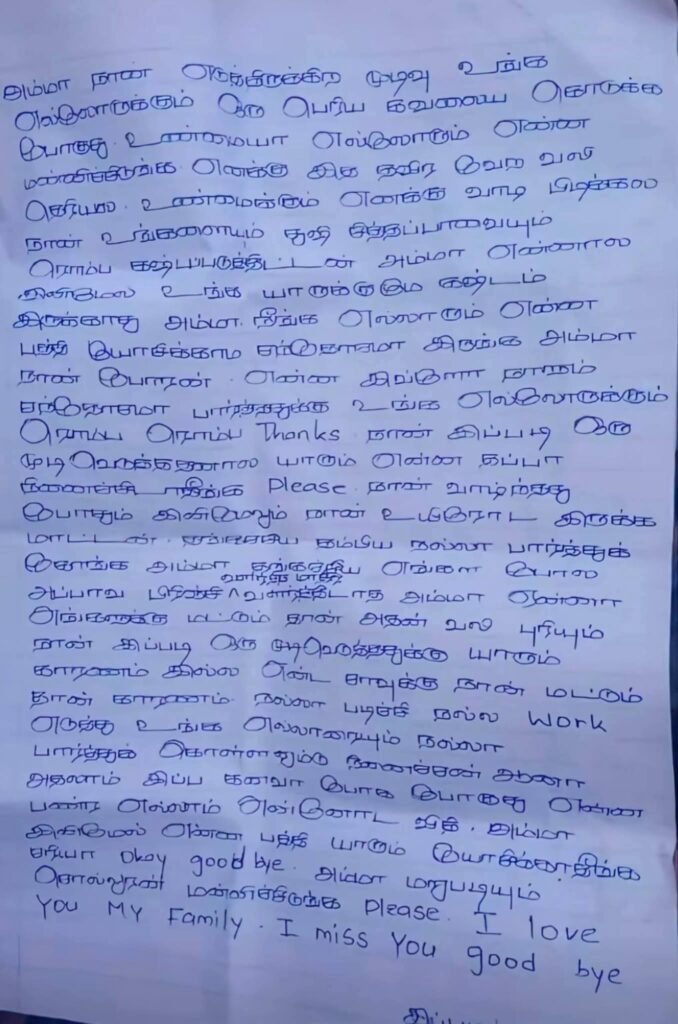 அம்மா நான் எடுத்திருக்கிற முடிவு உங்க
எல்லோருக்கும் ஒரு பெரிய கவலைய கொடுக்க
போகுது. உண்மையா எல்லோரும் என்ன
மன்னிச்சிடுங்க எனக்கு இத தவிர வேற வலி
தெரியல. உண்மைக்கும் எனக்கு வாழ பிடிக்கல
நான் உங்களையும் சித்தப்பாவையும்
ரொம்ப கஷ்டப்படுத்திட்டன் அம்மா என்னால
இனிமேல் உங்க யாருக்குமே கஷ்டம்
இருக்காது அம்மா. நீங்க எல்லாரும் என்ன
பத்தி யோசிக்காம சந்தோசமா இருங்க அம்மா
நான் போரன். என்ன இவ்ளோ நாளும்
சந்தோசமா பார்த்ததுக்கு உங்க எல்லோருக்கும்
ரொம்ப ரொம்ப Thanks நான் இப்படி ஒரு
முடிவெடுத்ததனால யாரும் என்ன தப்பா
நினைச்சிடாதீங்க Please. நான் வாழ்ந்தது
போதும் இனிமேலும் நான் உயிரோட இருக்க
மாட்டன். தம்பிய நல்லா பார்த்துக்
கோங்க அம்மா தங்கச்சிய எங்கள போல
வளர்த்த மாதிரி
அப்பாவ பிரிஞ்சி வளர்த்திடாத அம்மா ஏன்னா
எங்களுக்கு மட்டும் தான் அதன் வலி புரியும்
நான் இப்படி ஒரு முடிவெடுத்ததுக்கு யாரும்
காரணம் இல்ல என்ட சாவுக்கு நான் மட்டும்
தான் காரணம். நல்லா படிச்சி நல்ல work
எடுத்து உங்க எல்லாரையும் நல்லா
பார்த்துக் கொள்ளனும்டு நினைச்சன் ஆனா
அதெலாம் இப்ப கனவா போக போகுது என்ன
பண்ர எல்லாம் என்னோட விதி. அம்மா
இனிமேல் என்ன பத்தி யாரும் யோசிக்காதீங்க
சரியா okay good bye. அம்மா மறுபடியும்
சொல்லுரன் மன்னிச்சிடுங்க Please. I love
You My Family. I miss You good bye